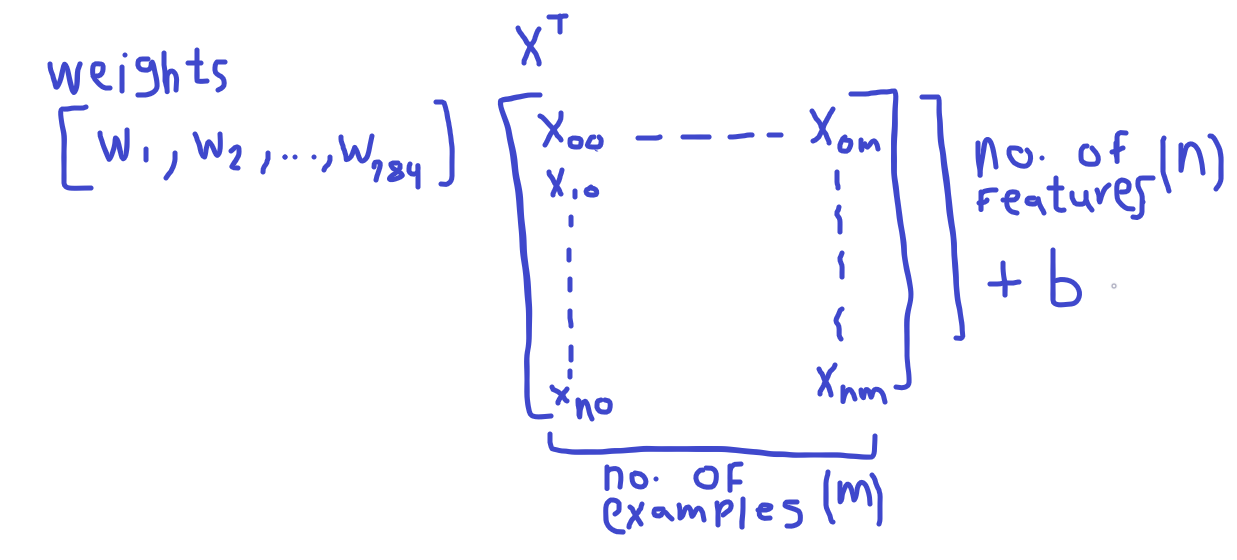 X^T
weights
[W1, W2, ..., W784]
X00 ---- X0m
X10
xn0 Xnm
no. of
Features (n)
+ b
no. of
examples (m)